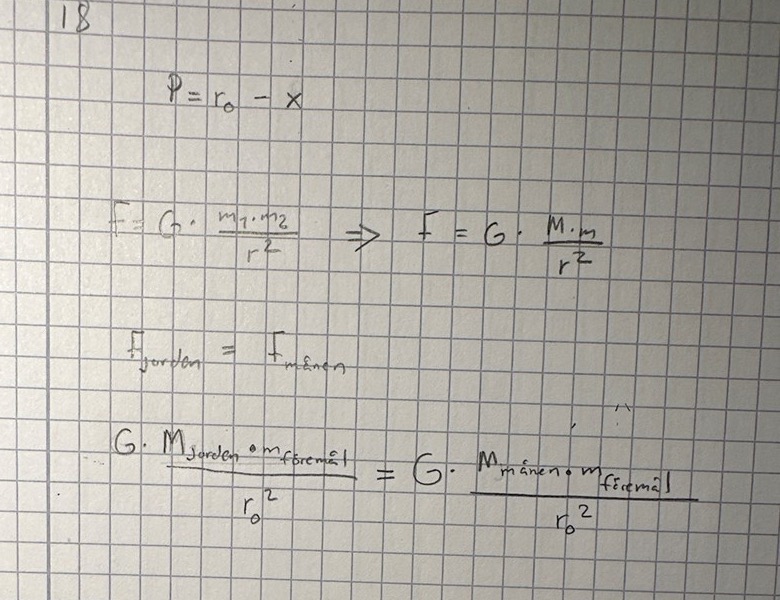 18
P = r₀ - x
F = G · m₁·m₂ / r² ⇒ F = G · M·m / r²
Fjorden = Fmånen
G · Mjorden · mföremål / r₀² = G · Mmånen · mföremål / r₀²